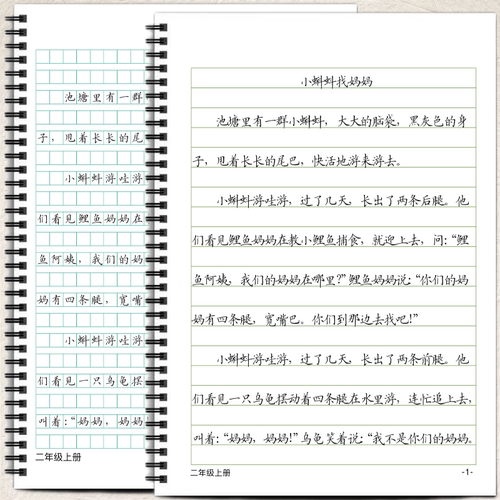 池塘里有一群
子，甩着长长的尾
小蝌蚪游哇游
们看见鲤鱼妈妈在
鱼阿姨，我们的妈
妈有四条腿，宽嘴
小蝌蚪游哇游
们看见一只乌龟摆
叫着：“妈妈，妈妈
二年级上册
小蝌蚪找妈妈
池塘里有一群小蝌蚪，大大的脑袋，黑灰色的身
子，甩着长长的尾巴，快活地游来游去。
小蝌蚪游哇游，过了几天，长出了两条后腿。他
们看见鲤鱼妈妈在教小鲤鱼捕食，就迎上去，问：“鲤
鱼阿姨，我们的妈妈在哪里？”鲤鱼妈妈说：“你们的妈
妈有四条腿，宽嘴巴。你们到那边去找吧！”
小蝌蚪游哇游，过了几天，长出了两条前腿。他
们看见一只乌龟摆动着四条腿在水里游，连忙追上去，
叫着：“妈妈，妈妈！”乌龟笑着说：“我不是你们的妈妈。
二年级上册
-1-